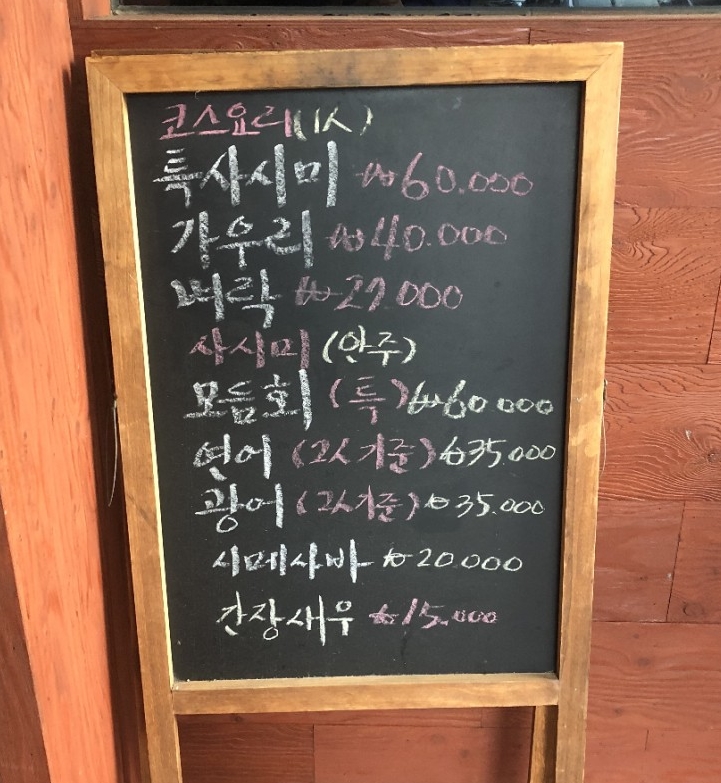 코스요리(1人)
특사시미 ₩60.000
가우리 ₩40.000
벼락 ₩27.000
사시미 (안주)
모듬회 (특) ₩60.000
연어 (2人기준) ₩35.000
광어 (2人기준) ₩35.000
시메사바 ₩20.000
간장새우 ₩15.000